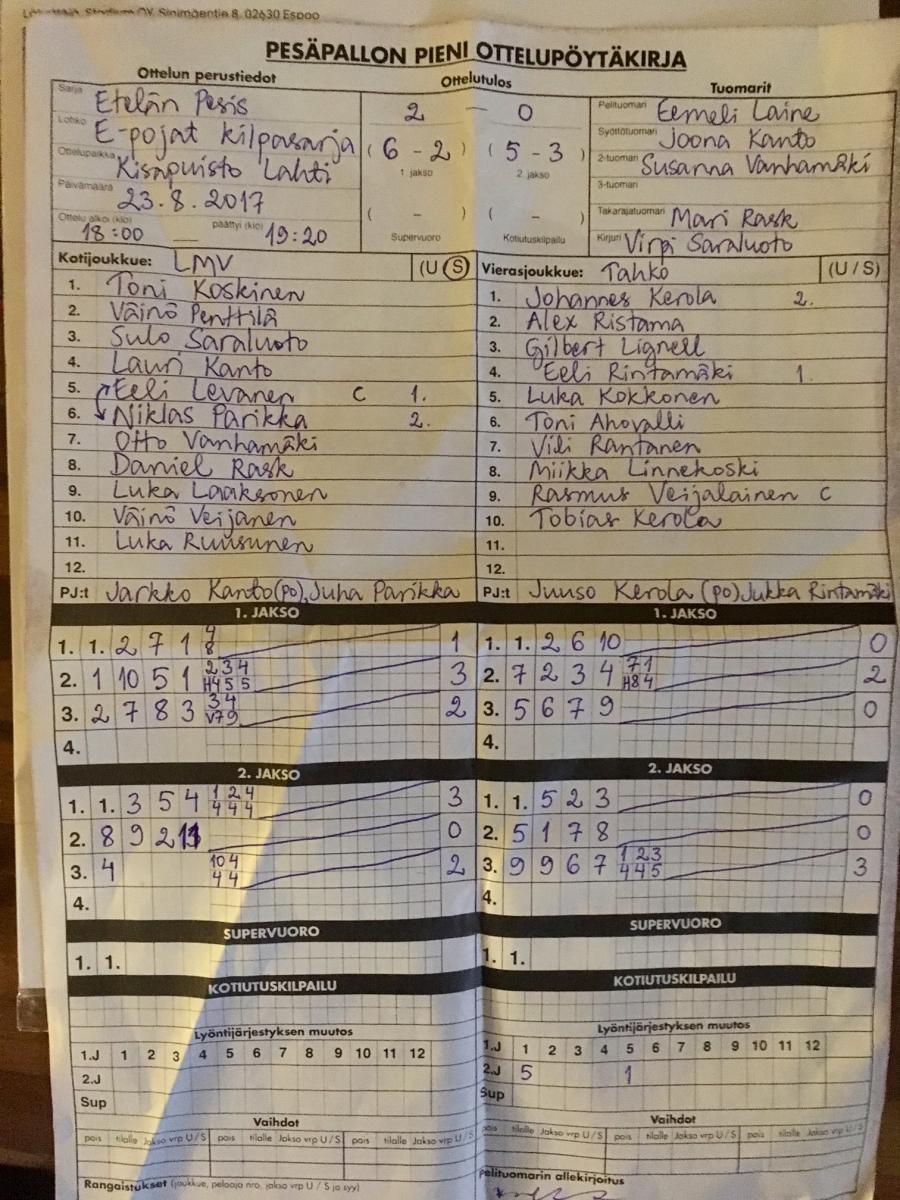 Stadium OY, Sinimäentie 8, 02630 Espoo
PESÄPALLON PIENI OTTELUPÖYTÄKIRJA
Ottelun perustiedot Ottelutulos Tuomarit
Sarja Etelän Pesis 2 — 0 Pelituomari Eemeli Laine
Lohko E-pojat kilpasarja ( 6 - 2 ) ( 5 - 3 ) Syöttötuomari Joona Kanto
Ottelupaikka Kisapuisto Lahti 1. jakso 2. jakso 2-tuomari Susanna Vanhamäki
Päivämäärä 23.8.2017 3-tuomari
Ottelu alkoi (klo) 18:00 — päättyi (klo) 19:20 ( - ) ( - ) Takarajatuomari Mari Rask
Supervuoro Kotiutuskilpailu Kirjuri Virpi Saraluoto
Kotijoukkue: LMV (U S)
1. Toni Koskinen
2. Väinö Penttilä
3. Sulo Saraluoto
4. Lauri Kanto
5. Eeli Levanen C 1.
6. Niklas Parikka 2.
7. Otto Vanhamäki
8. Daniel Rask
9. Luka Laaksonen
10. Väinö Veijanen
11. Luka Ruusunen
12.
PJ:t Jarkko Kanto(po), Juha Parikka
Vierasjoukkue: Tahko (U / S)
1. Johannes Kerola 2.
2. Alex Ristama
3. Gilbert Lignell
4. Eeli Rintamäki 1.
5. Luka Kokkonen
6. Toni Ahovalli
7. Vili Rantanen
8. Miikka Linnekoski
9. Rasmus Veijalainen C
10. Tobias Kerola
11.
12.
PJ:t Juuso Kerola (po) Jukka Rintamäki
1. JAKSO
1. 1. 2 7 1 4 8 1
2. 1 10 5 1 2 3 4 H4 5 5 3
3. 2 7 8 3 3 4 V7 9 2
4.
1. JAKSO
1. 1. 2 6 10 0
2. 7 2 3 4 7 1 H8 4 2
3. 5 6 7 9 0
4.
2. JAKSO
1. 1. 3 5 4 1 2 4 4 4 4 3
2. 8 9 2 0
3. 4 10 4 4 4 2
4.
2. JAKSO
1. 1. 5 2 3 0
2. 5 1 7 8 0
3. 9 9 6 7 1 2 3 4 4 5 3
4.
SUPERVUORO
1. 1.
SUPERVUORO
1. 1.
KOTIUTUSKILPAILU
Lyöntijärjestyksen muutos
1.J 1 2 3 4 5 6 7 8 9 10 11 12
2.J
Sup
Vaihdot
pois tilalle Jakso vrp U / S pois tilalle Jakso vrp U / S pois tilalle Jakso vrp U / S
Rangaistukset (joukkue, pelaaja nro, jakso vrp U / S ja syy)
KOTIUTUSKILPAILU
Lyöntijärjestyksen muutos
1.J 1 2 3 4 5 6 7 8 9 10 11 12
2.J 5 1
Sup
Vaihdot
pois tilalle Jakso vrp U / S pois tilalle Jakso vrp U / S pois tilalle Jakso vrp U / S
pelituomarin allekirjoitus